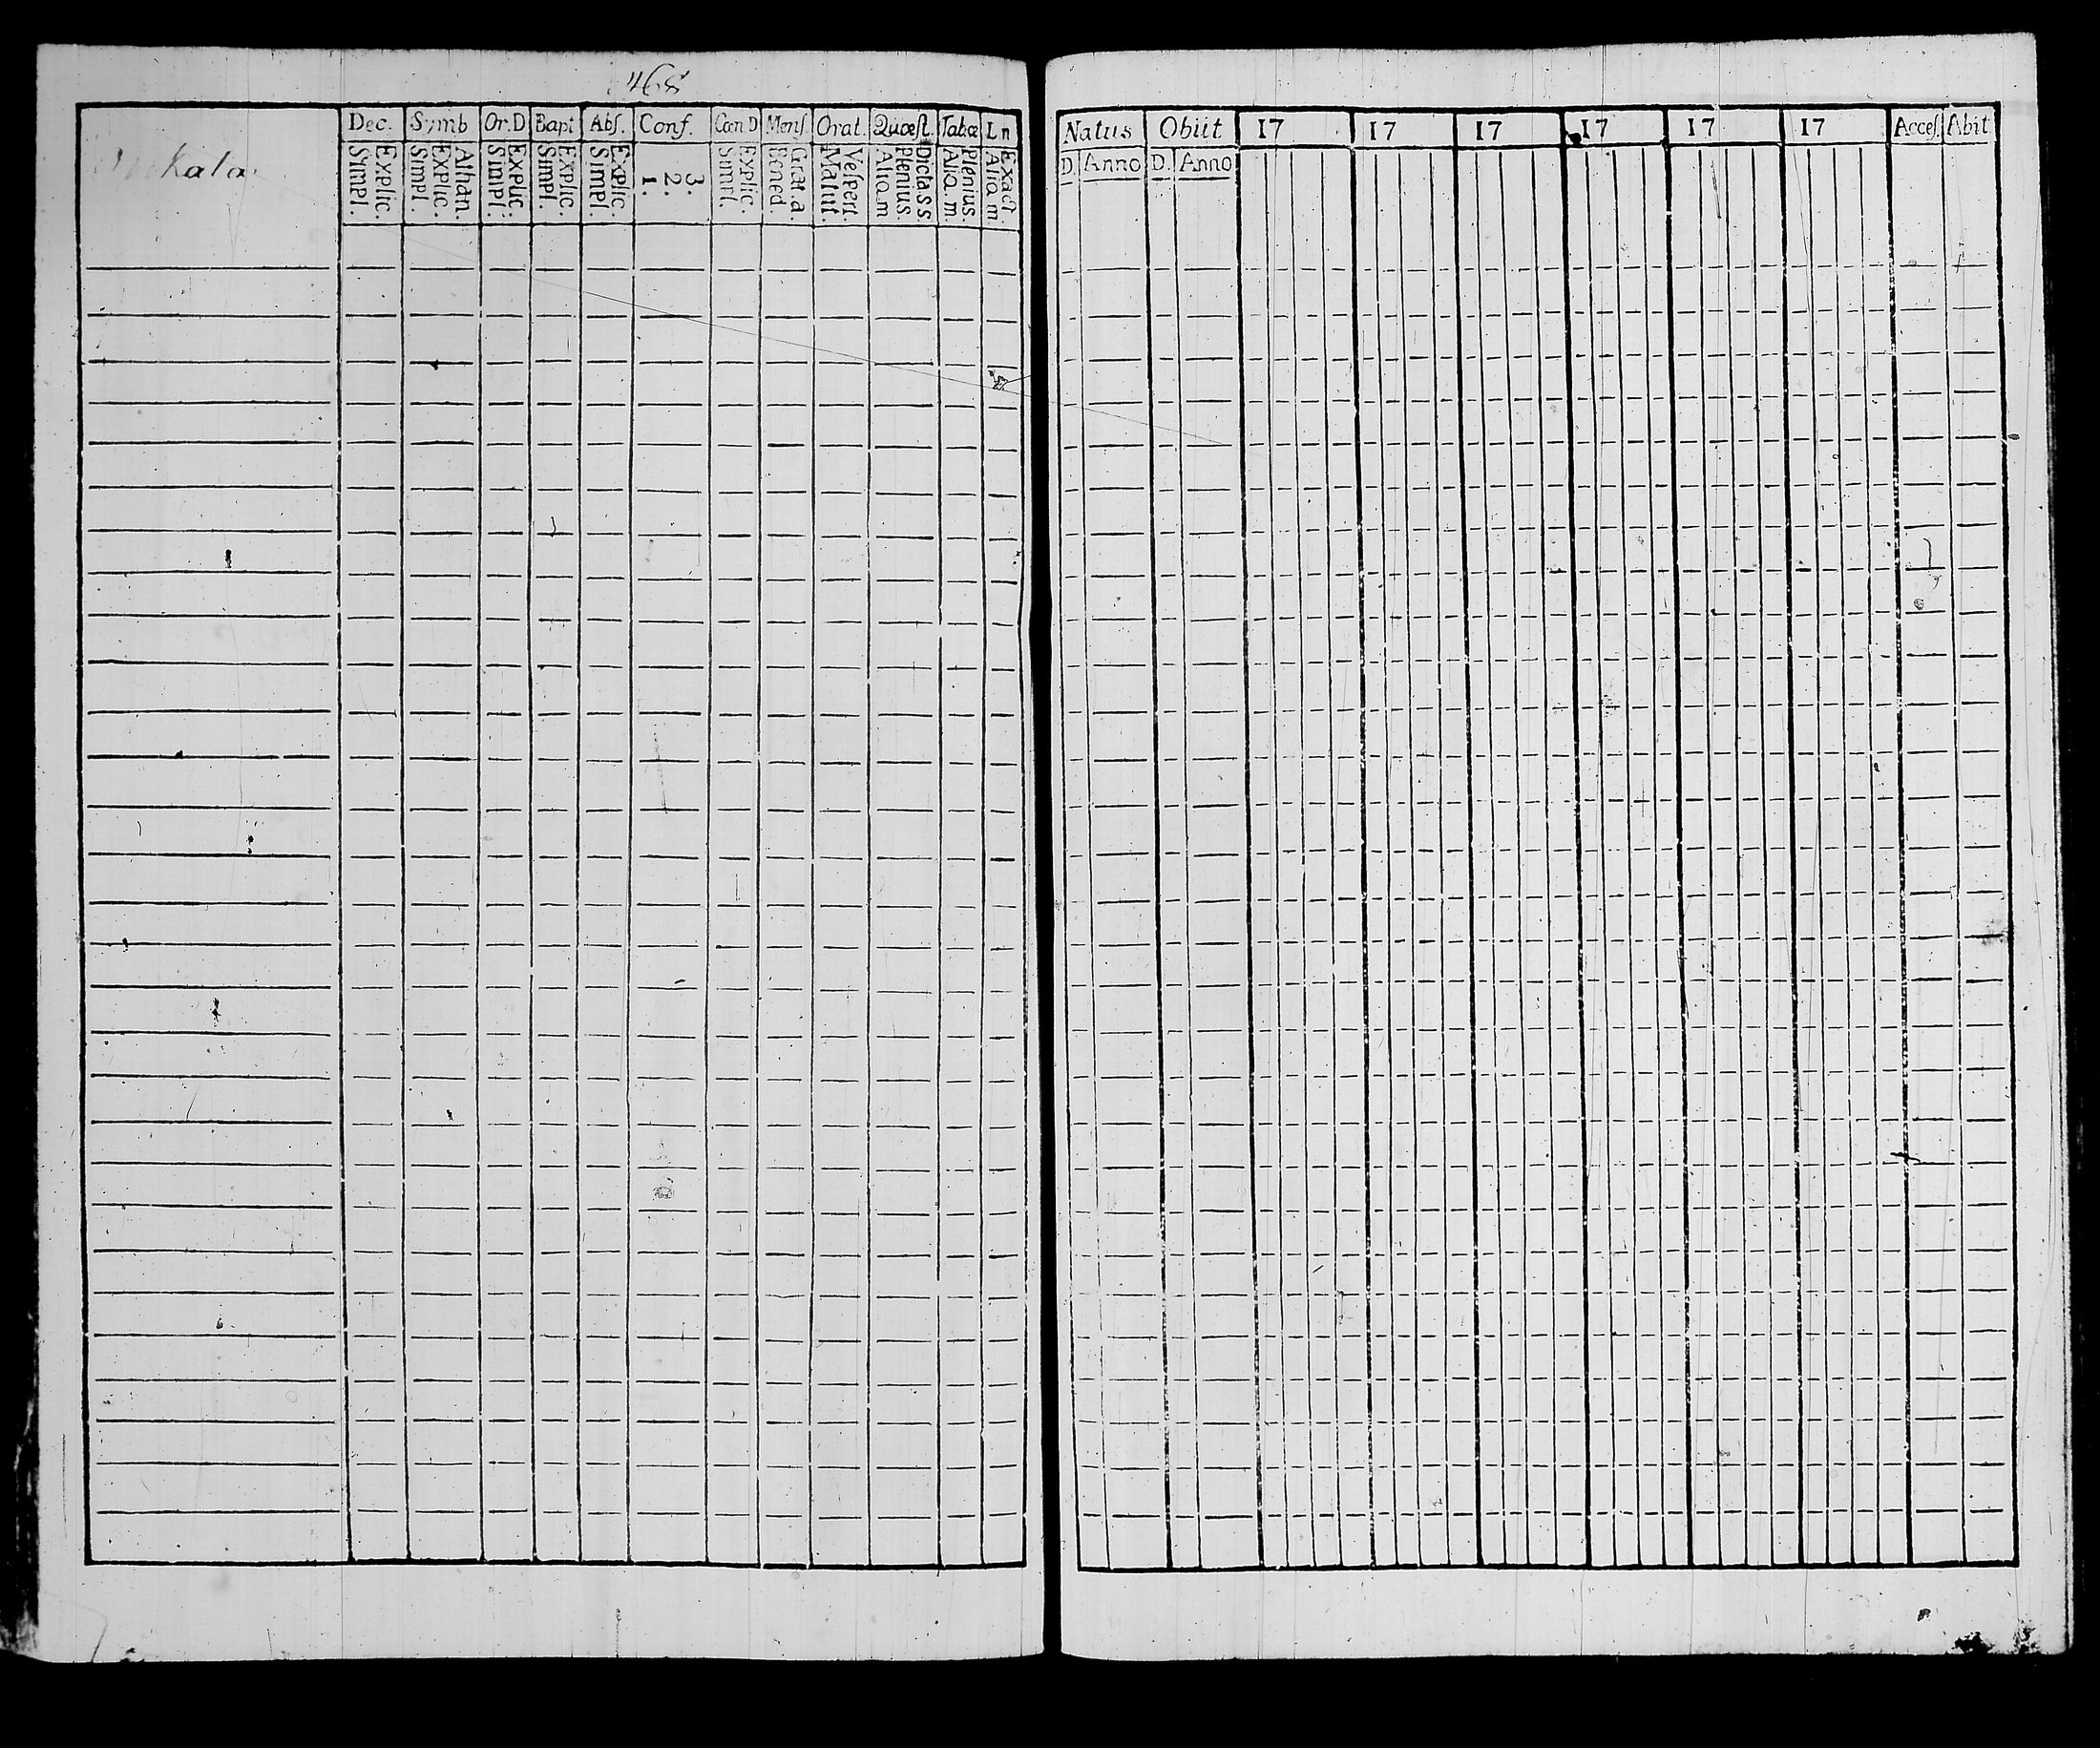 468
Dec. Symb Or.D Bapt Abſ. Conf. Cœn.D Menſ. Orat. Quæſt. Tabæ Ln
Explic. Simpl.
Athan. Explic. Simpl.
Explic. Simpl.
Explic. Simpl.
Explic. Simpl.
3. 2. 1.
Explic. Simpl.
Grat. a Bened.
Veſpert. Matut.
Dictass Plenius. Aliq. m
Plenius. Aliq. m.
Exact. Aliq. m.
Natus Obiit 17 17 17 17 17 17 Acceſ. Abit
D. Anno D. Anno